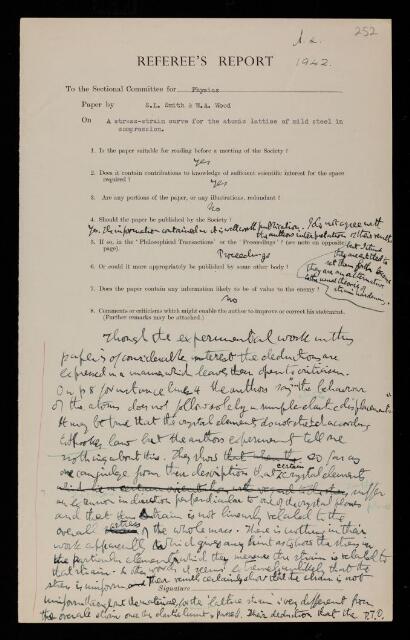 252
A.2.
1942.
REFEREE'S REPORT
To the Sectional Committee for Physics
Paper by S.L. Smith & W.A. Wood
On A stress-strain curve for the atomic lattice of mild steel in
compression.
1. Is the paper suitable for reading before a meeting of the Society ?
yes
2. Does it contain contributions to knowledge of sufficient scientific interest for the space
required ?
yes
3. Are any portions of the paper, or any illustrations, redundant ?
No
4. Should the paper be published by the Society ?
Yes, the information contained in it is well worth publication. I do not agree with
the authors interpretation of their results
5. If so, in the ' Philosophical Transactions ' or the ' Proceedings ' ? (see note on opposite
page).
but I think
they are entitled to
set them forth because
they are an alternative
to the usual theories of
strain hardening.
Proceedings
6. Or could it more appropriately be published by some other body ?
7. Does the paper contain any information likely to be of value to the enemy ?
no
8. Comments or criticisms which might enable the author to improve or correct his statement.
(Further remarks may be attached.)
Though the experimental work in this
paper is of considerable interest the deductions are
expressed in a manner which leaves them open to criticism.
On p 8 for instance line 4 the authors say "the behaviour
of the atoms does not follow solely a simple elastic displacement"
It may be true that the crystal element do not stretch according
to Hookes law but the authors experiment tell me
nothing about this. They show that so far as
one can judge from their description that certain crystal elements
suffer
an in direction perpendicular to one of the crystal planes
and that strain is not linearly related to the
overall stress of the whole mass. There is nothing in their
work apparently which gives any hint as to how the stress in
the particular elements which they measure the strain is related to
that strain. In they would it seems to be unlikely that the
stress is uniform and their results certainly show that the strain is not
Signature
uniform the "lattice strain" is very different from
the overall strain once the elastic limit is passed. Their deduction that the P.T.O.